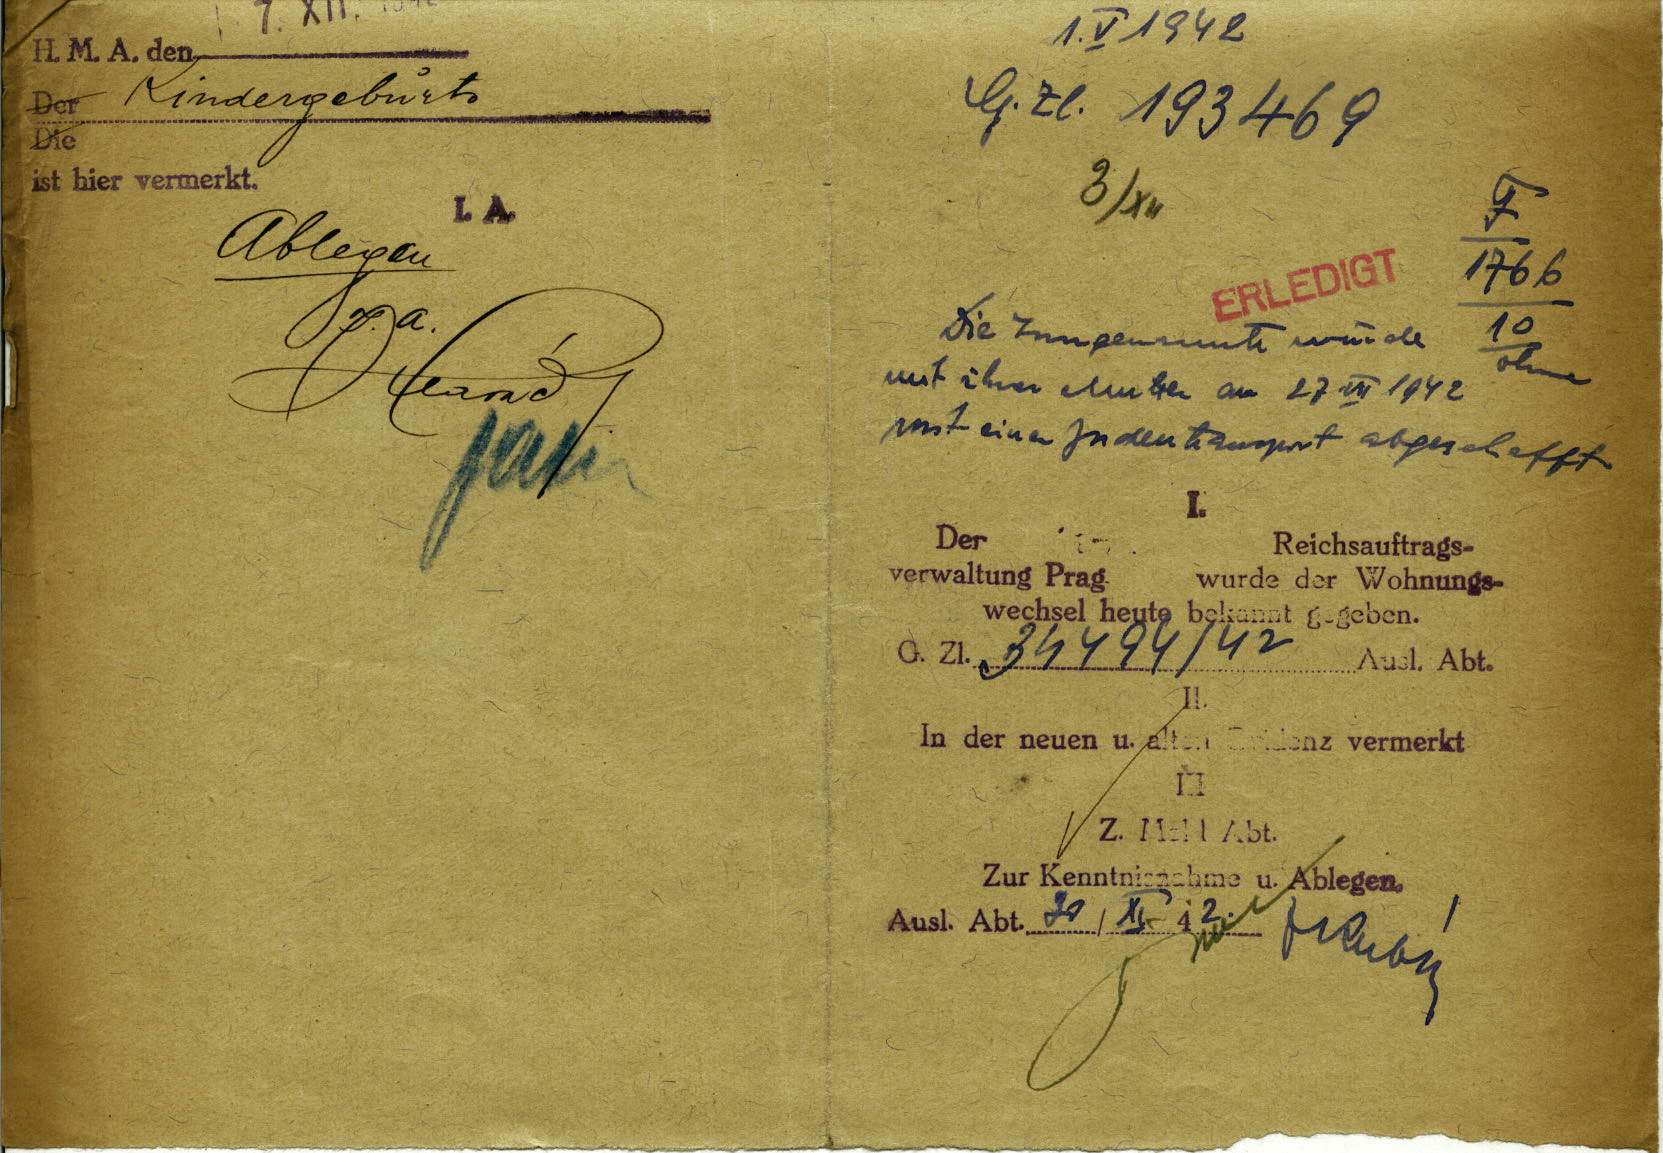 7. XII. 1942
H. M. A. den
Der Kindergeburts
Die
ist hier vermerkt.
I. A.
Ablegen
I. a.
1. V 1942
G. Zl. 193469
3/XII
F
1766
10
ohne
ERLEDIGT
Die wurde
mit ihrer Mutter am 27 VII 1942
mit einem Judentransport abgeschafft
I.
Der Reichsauftrags-
verwaltung Prag wurde der Wohnungs-
wechsel heute bekannt gegeben.
G. Zl. 34494/42 Ausl. Abt.
II.
In der neuen u. alten Evidenz vermerkt
III
Z. Abt.
Zur Kenntnisnahme u. Ablegen.
Ausl. Abt. 30 / XI 42.